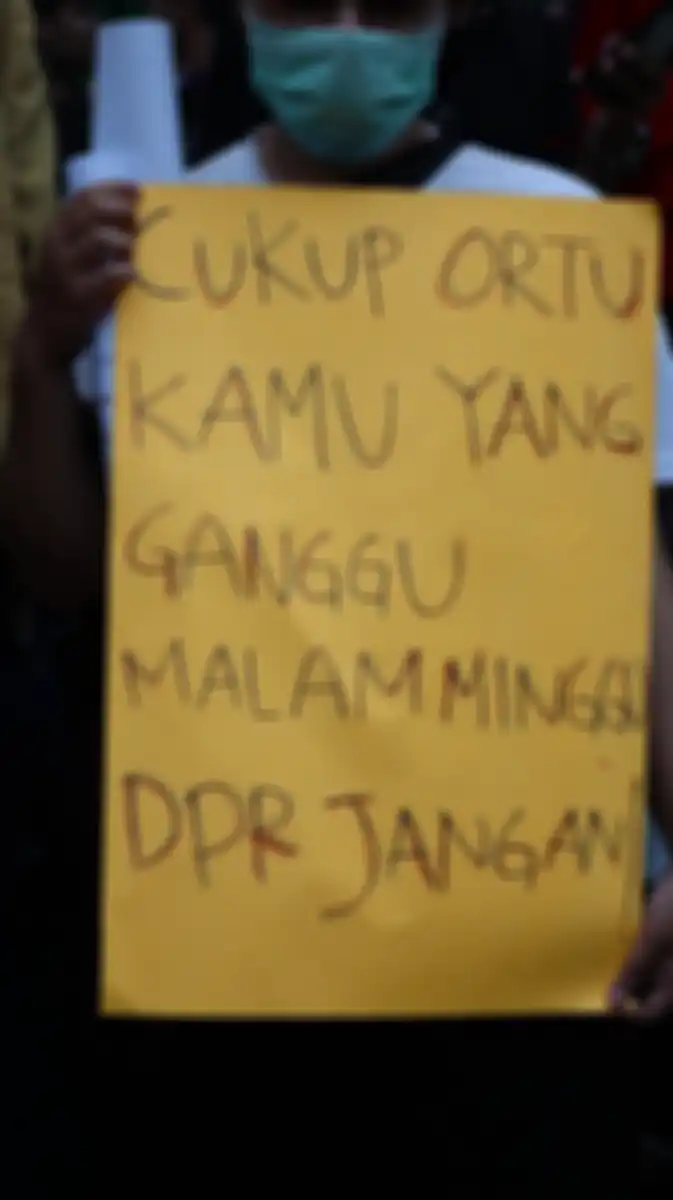 CUKUP ORTU
KAMU YANG
GANGGU
MALAM MINGGU
DPR JANGAN!